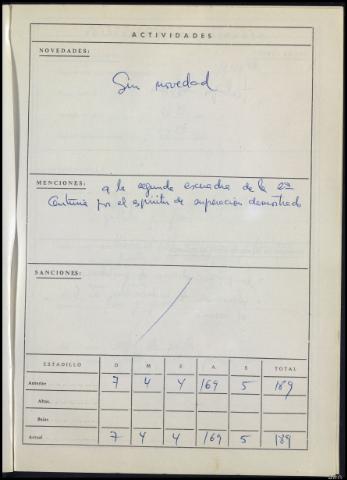 ACTIVIDADES
NOVEDADES:
Sin novedad
MENCIONES: a la segunda escuadra de la 2ª
Centuria por el espíritu de superación demostrado
SANCIONES:
ESTADILLO D M E A S TOTAL
Anterior 7 4 4 169 5 189
Altas
Bajas
Actual 7 4 4 169 5 189